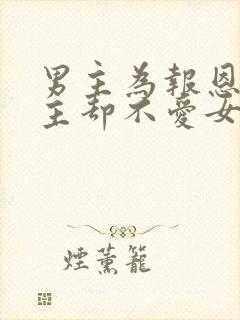 男主為報恩
主却不愛女
煙薰籠